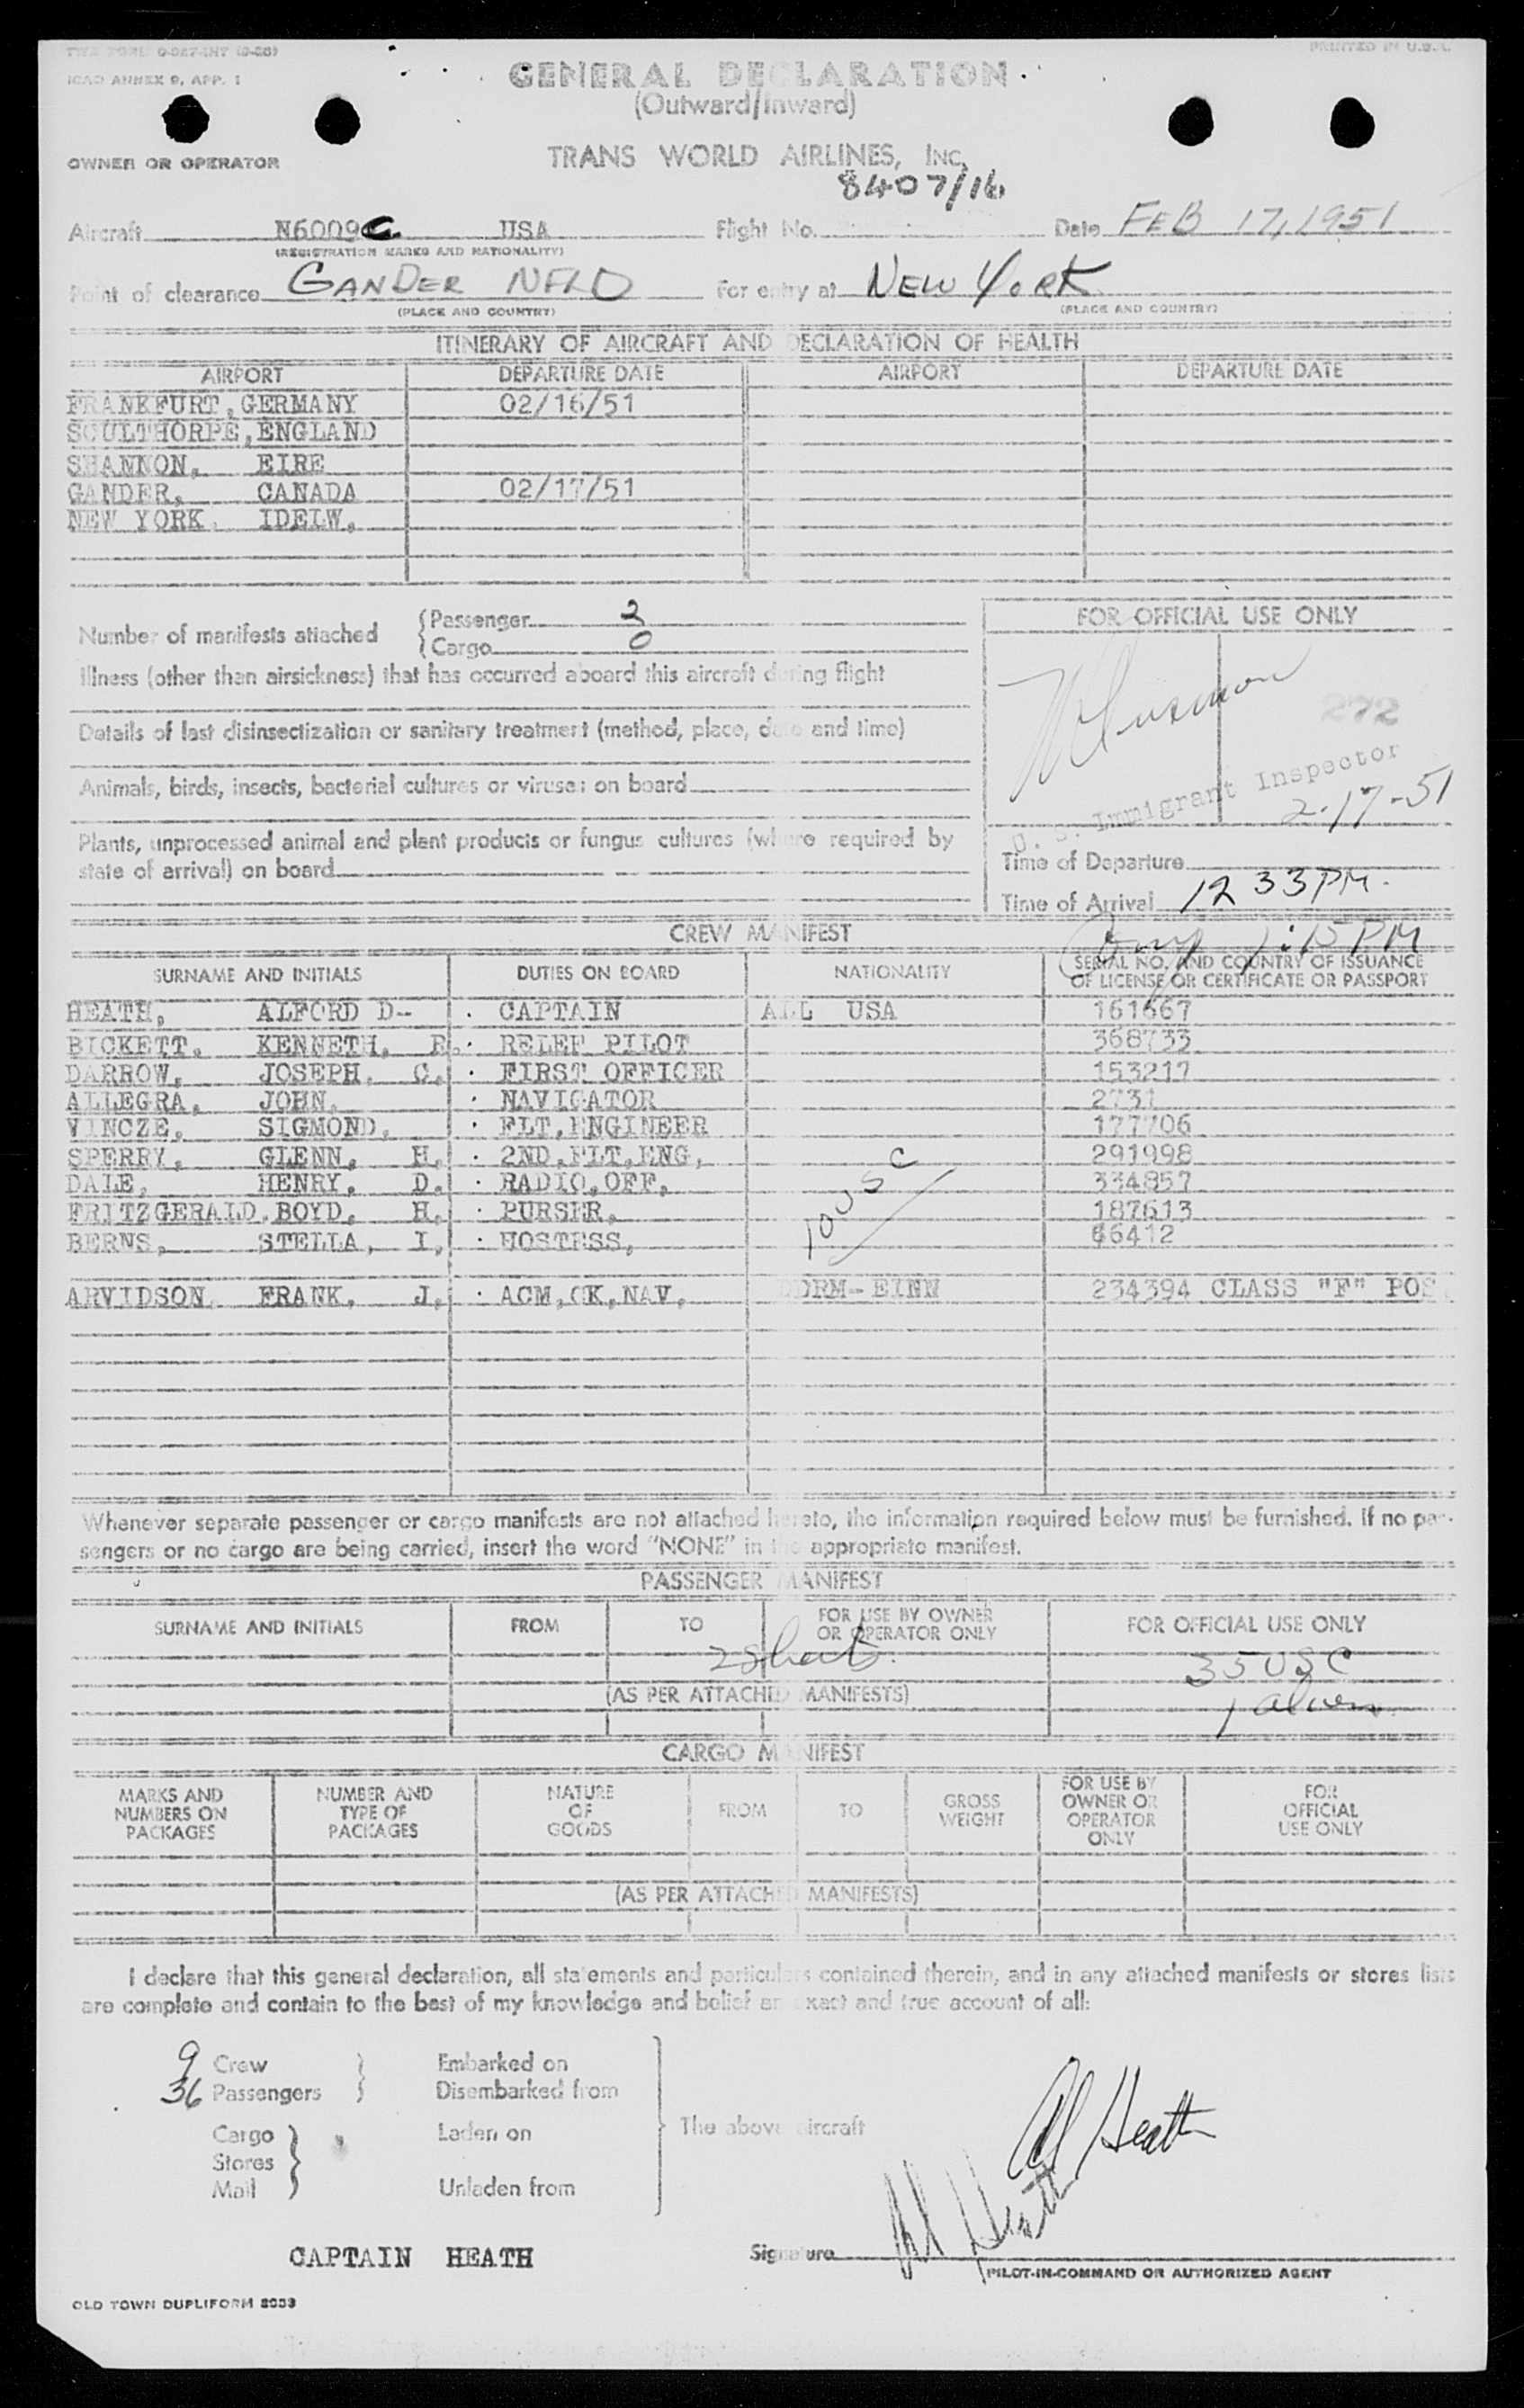 TWA FORM O-027-INT (9-50)
PRINTED IN U.S.A.
ICAO ANNEX 9, APP. 1
GENERAL DECLARATION
(Outward/Inward)
OWNER OR OPERATOR
TRANS WORLD AIRLINES, INC.
8407/16
Aircraft N6009C USA Flight No. Date FEB 17, 1951
(REGISTRATION MARKS AND NATIONALITY)
Point of clearance GANDER NFLD For entry at NEW YORK
(PLACE AND COUNTRY) (PLACE AND COUNTRY)
ITINERARY OF AIRCRAFT AND DECLARATION OF HEALTH
AIRPORT DEPARTURE DATE AIRPORT DEPARTURE DATE
FRANKFURT, GERMANY 02/16/51
SCULTHORPE, ENGLAND
SHANNON, EIRE
GANDER, CANADA 02/17/51
NEW YORK. IDELW.
Number of manifests attached
Passenger 2
Cargo 0
FOR OFFICIAL USE ONLY
Illness (other than airsickness) that has occurred aboard this aircraft during flight
272
Details of last disinsectization or sanitary treatment (method, place, date and time)
U. S. Immigrant Inspector
2-17-51
Animals, birds, insects, bacterial cultures or viruses on board
Plants, unprocessed animal and plant products or fungus cultures (where required by
state of arrival) on board
Time of Departure
Time of Arrival 12 33 PM.
1:15 PM
CREW MANIFEST
SURNAME AND INITIALS DUTIES ON BOARD NATIONALITY SERIAL NO. AND COUNTRY OF ISSUANCE
OF LICENSE OR CERTIFICATE OR PASSPORT
HEATH, ALFORD D- CAPTAIN ALL USA 161667
BICKETT. KENNETH. R. RELEF PILOT 368733
DARROW, JOSEPH. C. FIRST OFFICER 153217
ALLEGRA, JOHN, NAVIGATOR 2731
VINCZE, SIGMOND, FLT.ENGINEER 177706
SPERRY, GLENN, H. 2ND.FLT.ENG, 291998
DALE, HENRY, D. RADIO.OFF, 334857
FRITZGERALD.BOYD, H. PURSER, 187613
BERNS, STELLA, I, HOSTESS, 66412
10 USC
ARVIDSON FRANK, J, ACM,CK,NAV, DORM-EINN 234394 CLASS "F" POS
Whenever separate passenger or cargo manifests are not attached hereto, the information required below must be furnished. If no pas-
sengers or no cargo are being carried, insert the word "NONE" in the appropriate manifest.
PASSENGER MANIFEST
SURNAME AND INITIALS FROM TO FOR USE BY OWNER
OR OPERATOR ONLY FOR OFFICIAL USE ONLY
2 Sheets. 35 USC
(AS PER ATTACHED MANIFESTS) 1 alien
CARGO MANIFEST
MARKS AND
NUMBERS ON
PACKAGES
NUMBER AND
TYPE OF
PACKAGES
NATURE
OF
GOODS
FROM
TO
GROSS
WEIGHT
FOR USE BY
OWNER OR
OPERATOR
ONLY
FOR
OFFICIAL
USE ONLY
(AS PER ATTACHED MANIFESTS)
I declare that this general declaration, all statements and particulars contained therein, and in any attached manifests or stores lists
are complete and contain to the best of my knowledge and belief an exact and true account of all:
9 Crew Embarked on
36 Passengers Disembarked from
Cargo Laden on The above aircraft
Stores
Mail Unladen from
Al Heath
Al Heath
CAPTAIN HEATH Signature
PILOT-IN-COMMAND OR AUTHORIZED AGENT
OLD TOWN DUPLIFORM 2033